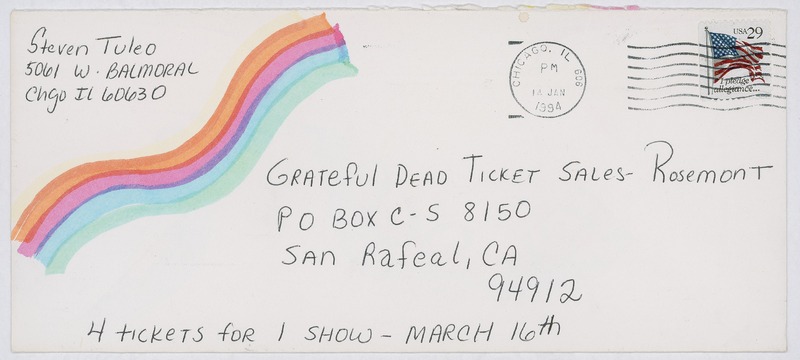 Steven Tuleo
5061 W. BALMORAL
Chgo Il 60630
CHICAGO, IL 606
PM
14 JAN
1994
USA 29
I pledge
allegiance...
GRATEfUL DEAD TICKET SALES- Rosemont
PO BOX C-S 8150
SAN Rafeal, CA
94912
4 tickets for 1 SHOW - MARCH 16th